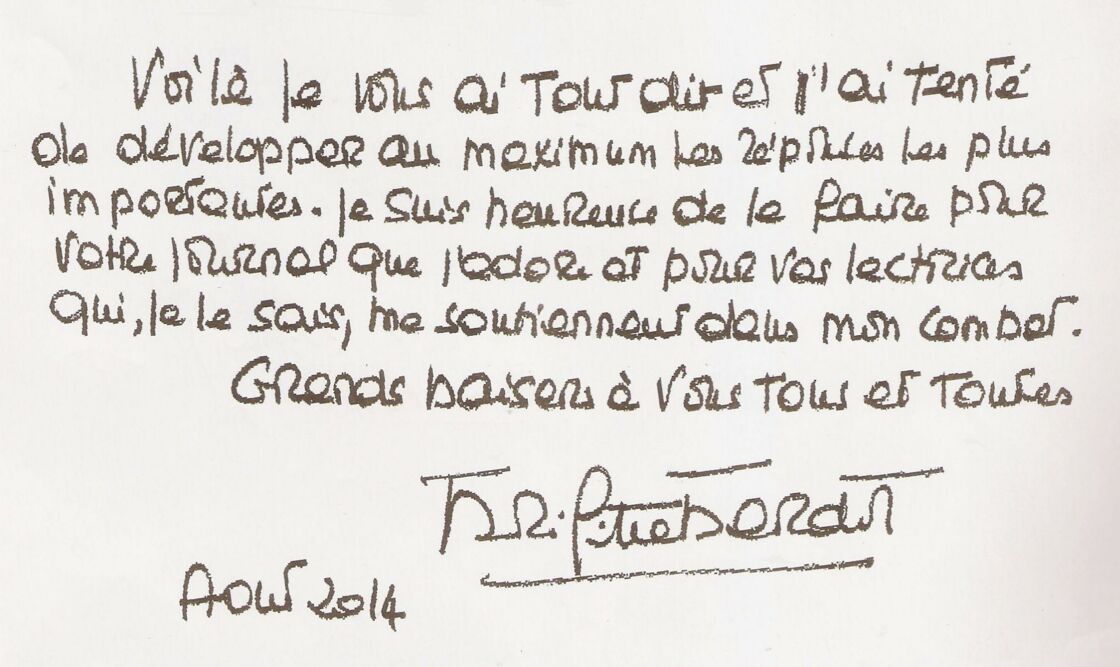 Voilà je vous ai tout dit et j'ai tenté
de développer au maximum les réponses les plus
importantes. Je suis heureuse de le faire pour
votre journal que j'adore et pour vos lectrices
qui, je le sais, me soutiennent dans mon combat.
Grands baisers à vous tous et toutes
Brigitte Bardot
Août 2014